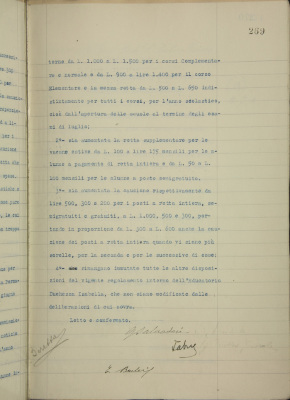 269
tenne da L. 1.000 a L. 1.500 per i corsi Complementa-
re e normale e da L. 900 a lire 1.400 per il corso
Elementare e la mezza retta da L. 500 a L. 650 indi-
stintamente per tutti i corsi, per l'anno scolastico,
cioè dall'apertura delle scuole al termine degli esa-
mi di luglio;
2°- sia aumentata la retta supplementare per le
vacanze estive da L. 100 a lire 175 mensili per le a-
lunne a pagamento di retta intiera e da L. 50 a L.
100 mensili per le alunne a posto semigratuito.
3°- sia aumentata la cauzione rispettivamente da
lire 500, 300 e 200 per i posti a retta intiera, se-
migratuiti e gratuiti, a L. 1.000, 500 e 300, per-
tando in proporzione da L. 300 a L. 600 anche la cau-
zione dei posti a retta intiera quando vi siano più
sorelle, per la seconda e per le successive di esse;
4°- rimangano immutate tutte le altre disposi-
zioni del vigente regolamento interno dell'Educatorio
Duchessa Isabella, che non siano modificate dalle
deliberazioni di cui sopra.
Letto e confermato.